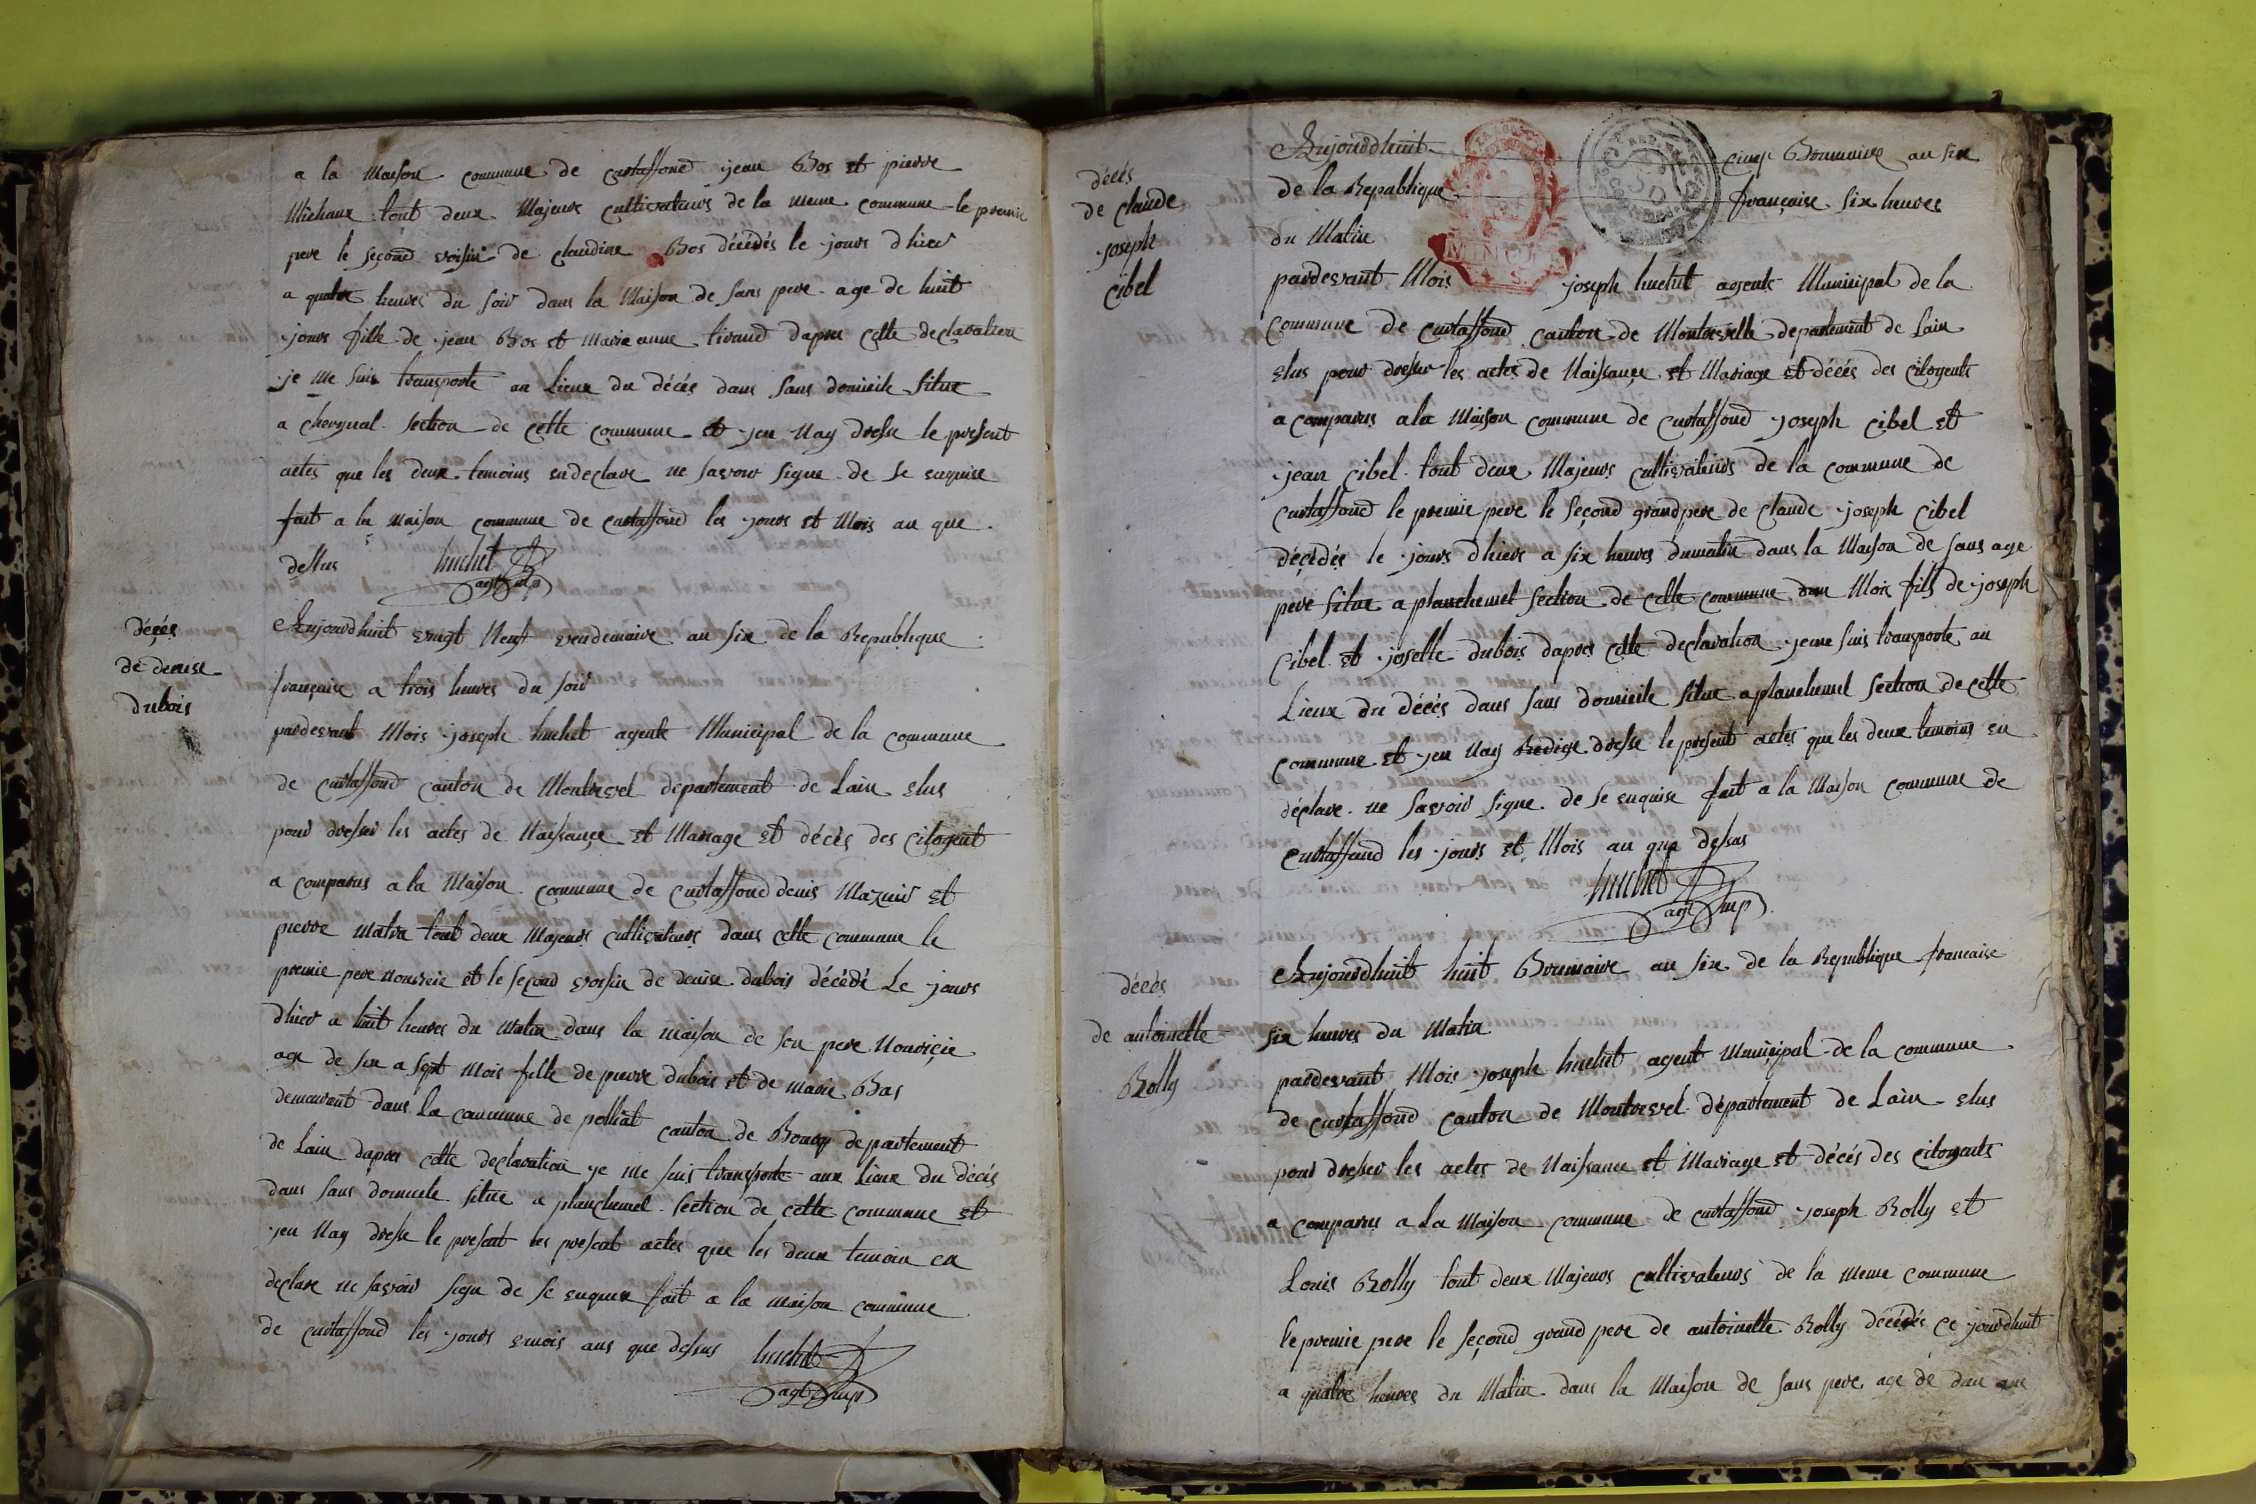 a la Maison commune de curtaffond jean Bos et pierre
Michaux tout deux Majeurs cultivateurs de la meme commune le premie
pere le segond voisin de claudine Bos décédés le jours dhier
a quatre heures du soir dans la Maison de sans pere age de huit
jours fille de jean Bos et Marie anne tirand dapres cette declaration
je me suis transporte au Lieux du décés dans sans domicile situe
a cheregnal section de cette commune et jen Nay dresse le present
actes que les deux temoins endeclare ne savoir signe de se enquise
fait a la maison commune de curtaffond les jours et Mois an que
dessus huchet
agt mp
décés
de denise
dubois
Aujourdhuit vingt Neuf vendemaire an six de la Republique
françaisse a trois heures du soir
pardevant Mois joseph huchet agente Municipal de la commune
de curtaffond canton de Montrevel departement de Lain elus
pour dresser les actes de Naissançe et Mariage et décés des citoyent
a comparus a la Maison commune de curtaffond denis Mazuir et
pierre matra tout deux Majeurs cultivateurs dans cette commune le
premie pere nourisie et le segond voisin de denise dubois décédé Le jours
dhier a huit heures du Matin dans la maison de son pere Nourigie
age de six a sept Mois fille de pierre dubois et de marie Bas
demeurant dans La commune de polliat canton de Bourg departement
de Lain dapres cette declaration je me suis transporte aux Lieux du décés
dans sans domicile situe a planchemel section de cette commune et
jen Nay dresse le present les present actes que les deux temoin en
declare ne savoir sign de se enquise fait a la maison commune
de curtaffond les jours emois ans que dessus huchet
agt mp
décés
de claude
joseph
cibel
Aujourdhuit cinq Brumaire an six
de la Republique française six heures
du Matin
pardevant Mois joseph huchet agents Municipal de la
commune de curtaffond canton de Montrevelle departement de Lain
elus pour dresser les actes de Naissançe et Mariage et décés des citoyents
a comparus ala Maison commune de curtaffond joseph cibel et
jean cibel tout deux Majeurs cultivateurs de la commune de
curtaffond le premie pere le segond grandpere de claude joseph cibel
décédés le jours dhiers a six heures dumatin dans la Maison de sans age
pere situe a planchemel section de cette commune dun Mois fils de joseph
cibel et joselle dubois dapres cette declaration jeme suis transporte au
Lieux du décés dans sans domicile situe a planchemel section de cette
commune et jen Nay Redige dresse le present actes que les deux temoins en
déclare ne savoir signe de se enquise fait a la Maison commune de
curtaffond les jours et Mois an que dessus
huchet
agt mp
décés
de antoinette
Rolly
Aujourdhuit huit Brumaire an six de la Republique francaise
six heures du Matin
pardevant Mois joseph huchet agent Municipal de la commune
de curtaffond canton de Montrevel département de Lain elus
pour dresser les actes de Naissance et Mariage et décés des citoyents
a comparus a La Maison commune de curtaffond joseph Rolly et
Louis Rolly tout deux Majeurs cultivateurs de la meme commune
le premie pere le segond grand pere de antoinette Rolly décédés ce jourdhuit
a quatre heures du Matin dans la Maison de sans pere age de dun an